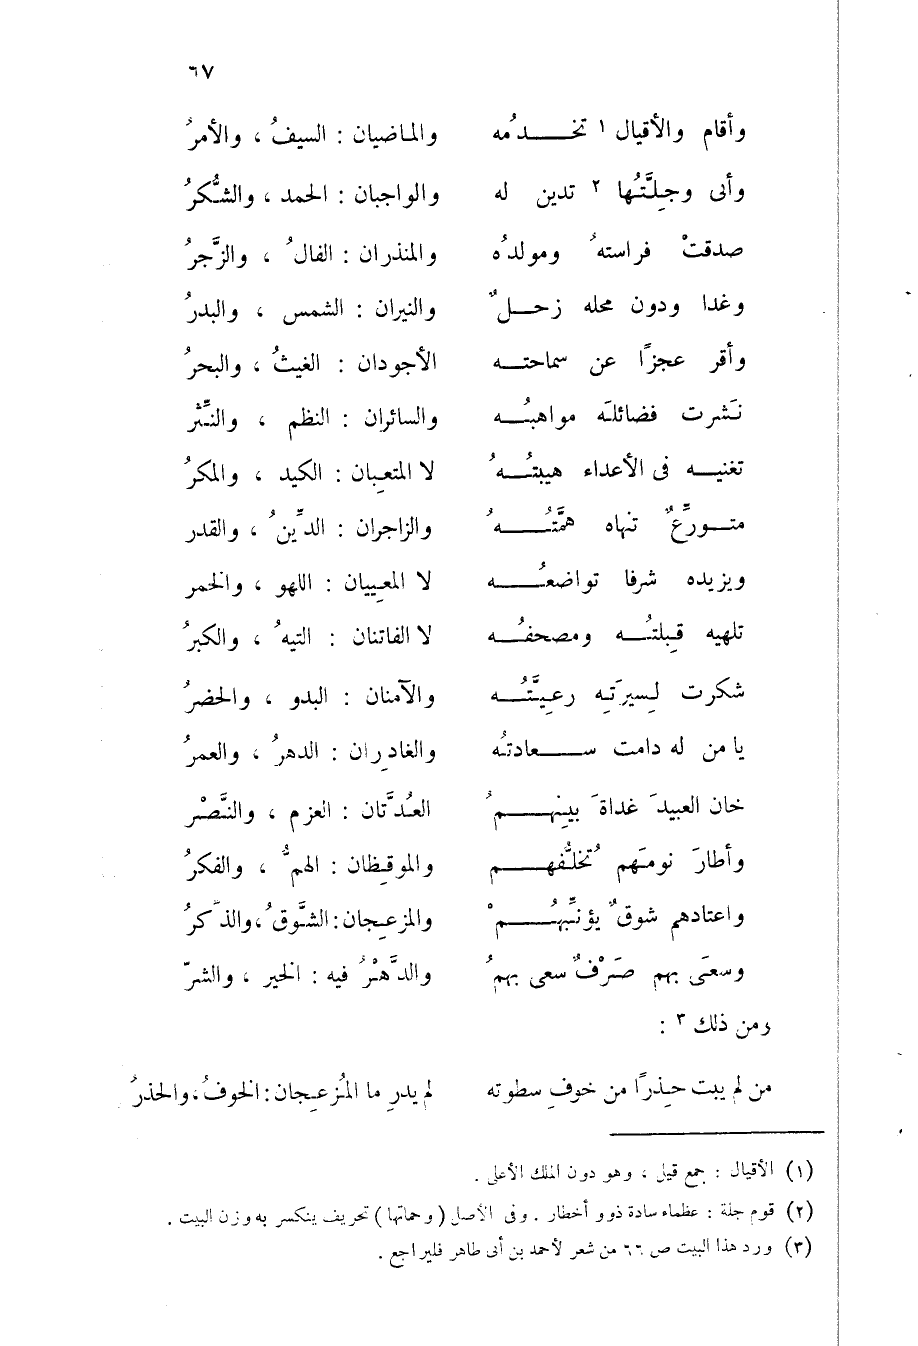 ٦٧
وأقام والأقيال ١ تخـــدُمه والماضيان : السيفُ ، والأمرُ
وأتى وجِلَّتُها ٢ تدين له والواجبان : الحمد ، والشُّكرُ
صدقتْ فراستهُ ومولدُه والمنذران : الفالُ ، والزَّجرُ
وغدا ودون محله زحـــلٌ والنيران : الشمس ، والبدرُ
وأقر عجزًا عن سماحتـــه الأجودان : الغيثُ ، والبحرُ
نَشرت فضائلَه مواهبُـــه والسائران : النظم ، والنَّثر
تغنيـــه فى الأعداء هيبتُـــهُ لا المتعِبان : الكيد ، والمكرُ
متـــورِّعٌ تنهاه همَّتُـــهُ والزاجران : الدِّينُ ، والقدر
ويزيده شرفا تواضعُـــه لا المعِيبان : اللهو ، والخمر
تلهيه قِبلتُـــه ومصحفُـــه لا الفاتنان : التيهُ ، والكبرُ
شكرت لِسيرَتِه رعِيَّتُـــه والآمنان : البدو ، والحضرُ
يا من له دامت ســـعادتُه والغادِران : الدهرُ ، والعمرُ
خان العبيدَ غداةَ بينِهـــمُ العُدَّتان : العزم ، والنَّصْر
وأطارَ نومَهم تُخلُّفهـــم والموقِظان : الهمُّ ، والفكرُ
واعتادهم شوقٌ يؤنِّبُهُـــمْ والمزعِجان : الشَّوقُ ، والذِّكرُ
وسعَى بهم صَرْفٌ سعى بهمُ والدَّهْرُ فيه : الخير ، والشرّ
ومن ذلك ٣ :
من لم يبت حِذرًا من خوفِ سطوته لم يدرِ ما المُزعِجان : الخوفُ ، والحذرُ
(١) الأقيال : جمع قيل ، وهو دون الملك الأعلى .
(٢) قوم جلة : عظماء سادة ذوو أخطار . وفى الأصل ( وحماتها ) تحريف ينكسر به وزن البيت .
(٣) ورد هذا البيت ص ٦٦ من شعر لأحمد بن أبى طاهر فليراجع .